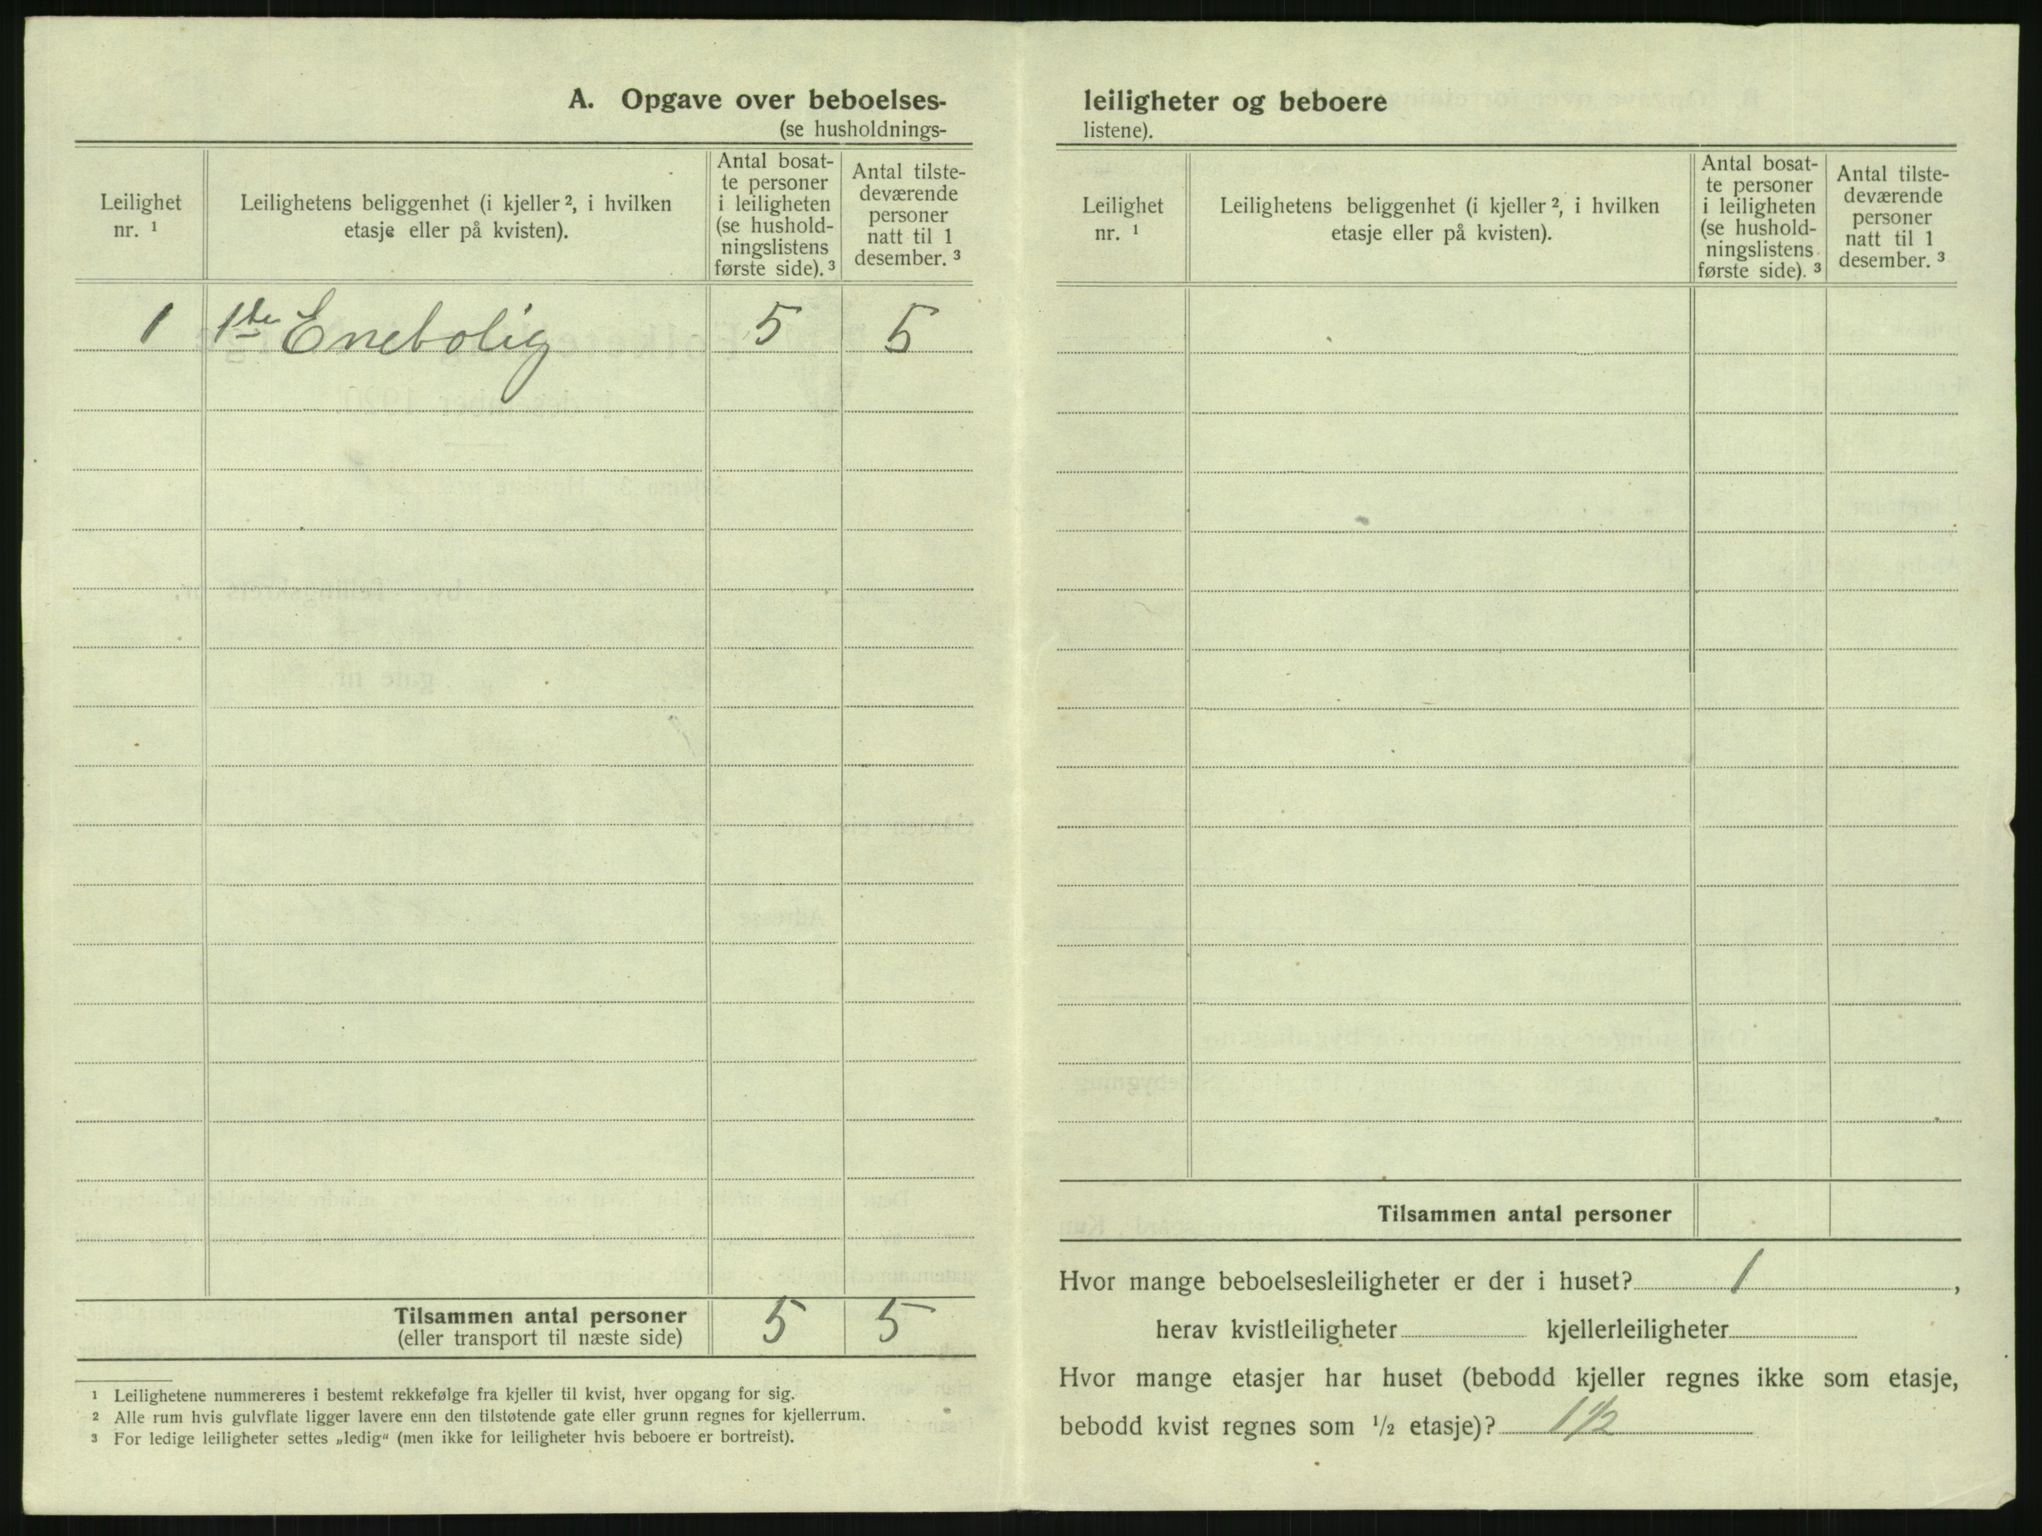 A. Opgave over beboelses-
(se husholdnings-
Leilighet
nr. ¹
Leilighetens beliggenhet (i kjeller ², i hvilken
etasje eller på kvisten).
Antal bosat-
te personer
i leiligheten
(se hushold-
ningslistens
første side). ³
Antal tilste-
deværende
personer
natt til 1
desember. ³
1 1ste Enebolig 5 5
Tilsammen antal personer 5 5
(eller transport til næste side)
¹ Leilighetene nummereres i bestemt rekkefølge fra kjeller til kvist, hver opgang for sig.
² Alle rum hvis gulvflate ligger lavere enn den tilstøtende gate eller grunn regnes for kjellerrum.
³ For ledige leiligheter settes „ledig“ (men ikke for leiligheter hvis beboere er bortreist).
leiligheter og beboere
listene).
Leilighet
nr. ¹
Leilighetens beliggenhet (i kjeller ², i hvilken
etasje eller på kvisten).
Antal bosat-
te personer
i leiligheten
(se hushold-
ningslistens
første side). ³
Antal tilste-
deværende
personer
natt til 1
desember. ³
Tilsammen antal personer
Hvor mange beboelsesleiligheter er der i huset? 1 ,
herav kvistleiligheter kjellerleiligheter
Hvor mange etasjer har huset (bebodd kjeller regnes ikke som etasje,
bebodd kvist regnes som ½ etasje)? 1½